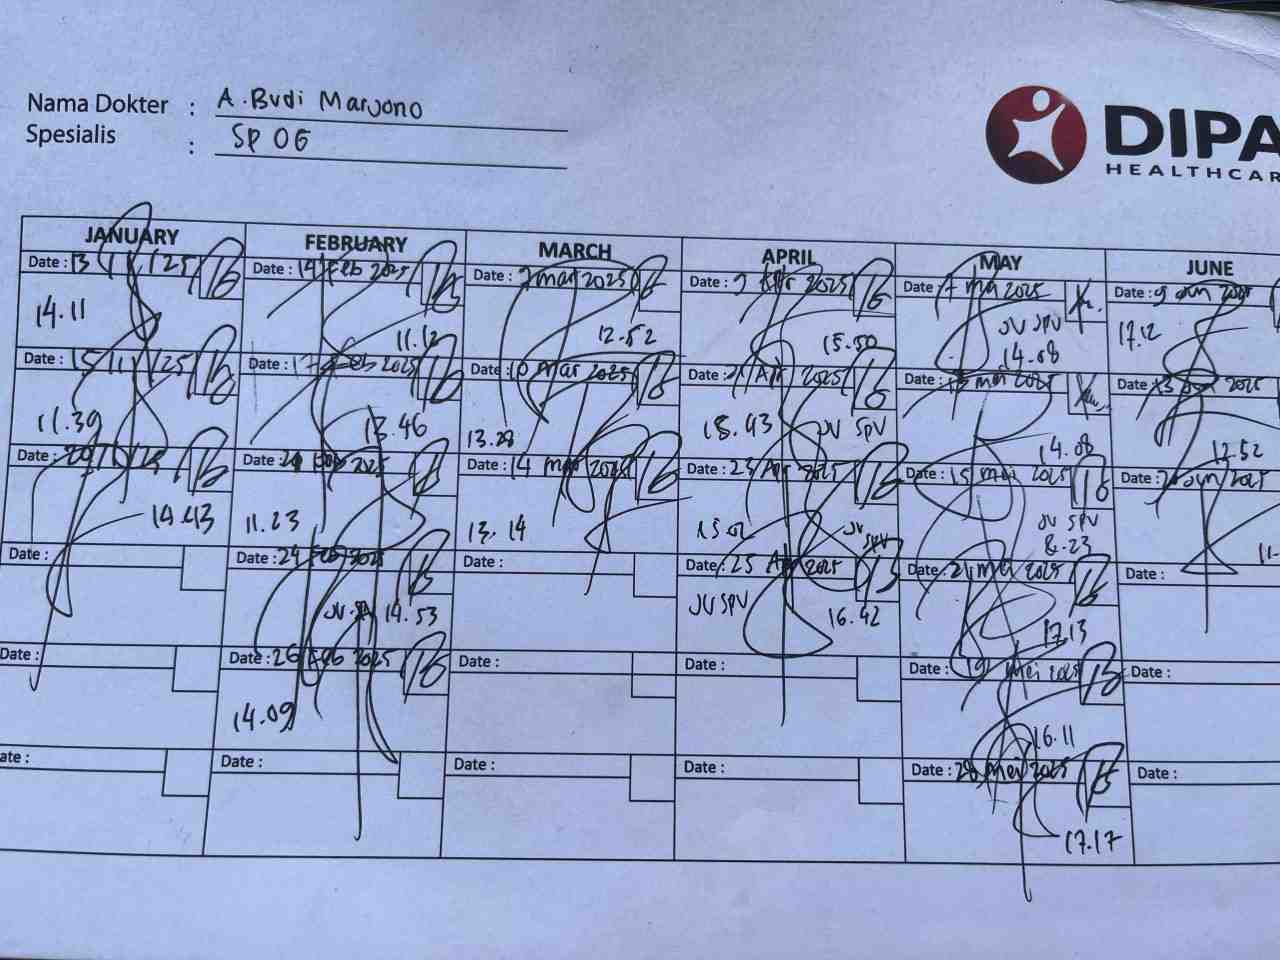 Nama Dokter : A. Budi Marjono
Spesialis : SP OG
DIPA
HEALTHCAR
JANUARY FEBRUARY MARCH APRIL MAY JUNE
Date : 13 / 1 / 25 Date : 14 Feb 2025 Date : 7 mar 2025 Date : Apr 2025 Date : 7 mei 2025 Date : 9 Jun 2025
14.11 11.12 12.52 15.50 JV SPV 14.08 17.12
Date : 15 / 1 / 25 Date : 17 Feb 2025 Date : 10 Mar 2025 Date : Apr 2025 Date : 13 mei 2025 Date : 13 Jun 2025
11.39 13.46 13.28 15.43 JV SPV 14.08 12.52
Date : 20 / 1 / 25 Date : Feb 2025 Date : 14 mar 2025 Date : 23 Apr 2025 Date : 15 mei 2025 Date : Jun 2025
14.43 11.23 13.14 15.02 JV SPV JV SPV 8.23 11.
Date : Date : 24 Feb 2025 Date : Date : 25 Apr 2025 Date : 21 mei 2025 Date :
JV 14.53 JV SPV 16.42 17.13
Date : Date : 26 Feb 2025 Date : Date : Date : 19 mei 2025 Date :
14.09 16.11
ate : Date : Date : Date : Date : 28 mei 2025 Date :
17.17